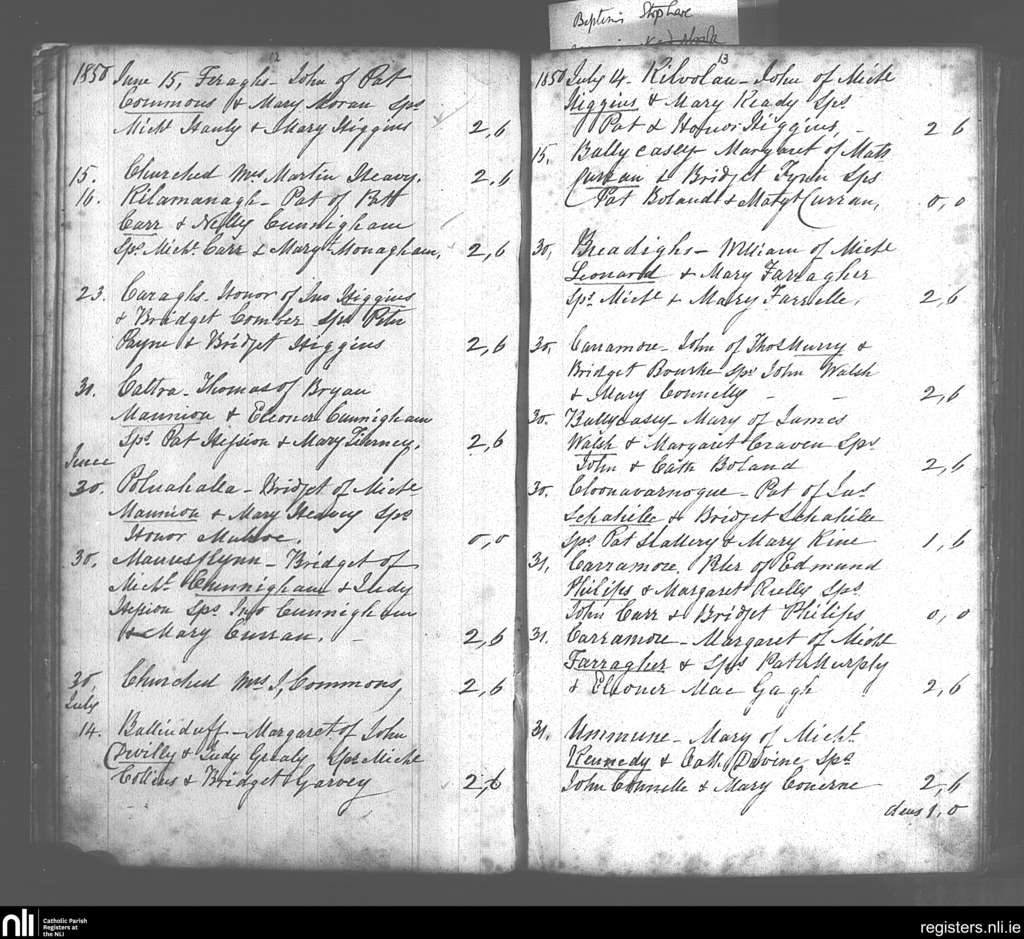 Baptisms
12
1850 June 15, Feraghs - John of Pat
Commons & Mary Moran Sps
Micht Hanly & Mary Higgins 2,6
15. Churched Mrs Martin Heavy. 2,6
16. Kilamanagh - Pat of Patt
Carr & Nelly Cunnigham
Sps. Micht. Carr & Mary Monagham, 2,6
23. Caraghs - Honor of Jno Higgins
& Bridget Comber Sps Peter
Payne & Bridget Higgins 2,6
30. Caltra - Thomas of Bryan
Mannion & Eleoner Cunnigham
Sps. Pat Hession & Mary Tierney. 2,6
June
30. Polnahalla - Bridget of Micht
Mannion & Mary Heavey Sps
Honor Mulroe. 0,0
30. - Bridget of
Micht. Cunnigham & Judy
Hession Sps Jno Cunnigham
& Mary Curran. - 2,6
30, Churched Mrs J, Commons, 2,6
July
14. Ballinduff - Margaret of John
& Judy Grealy Sps Micht
Collins & Bridget Garvey 2,6
13
1850 July 14. Kilvolan - John of Micht
Higgins & Mary Keady Sps
Pat & Honor Higgins, - 2 6
15, Ballycasey Margaret of Matt
Curran & Bridget Fynn Sps
Pat Boland & Matgt Curran, 0,0
30, Breadighs - William of Micht
Leonard & Mary Farragher
Sps. Micht & Mary Farrelle, 2,6
30, Carramore - John of Thos Murry &
Bridget Bourke Sps John Walsh
& Mary Connelly - - 2,6
30. Ballycasey - Mary of James
Walsh & Margaret Craven Sps
John & Cath Boland 2,6
30. Cloonavarnogue - Pat of Jas
Schahille & Bridget Schahille
Sps Pat Slattery & Mary Kine 1,6
31, Carramore. Ptr of Edmund
Philips & Margaret Rielly Sps.
John Carr & Bridget Philips 0,0
31. Carramore - Margaret of Micht
Farragher & Sps Patt Murphy
& Eleoner Mac Gagh 2,6
31. Ummune - Mary of Micht.
Kennedy & Cath. Divine Sps
John Connelle & Mary 2,6
1,0
nli Catholic Parish
Registers at
the NLI
registers.nli.ie